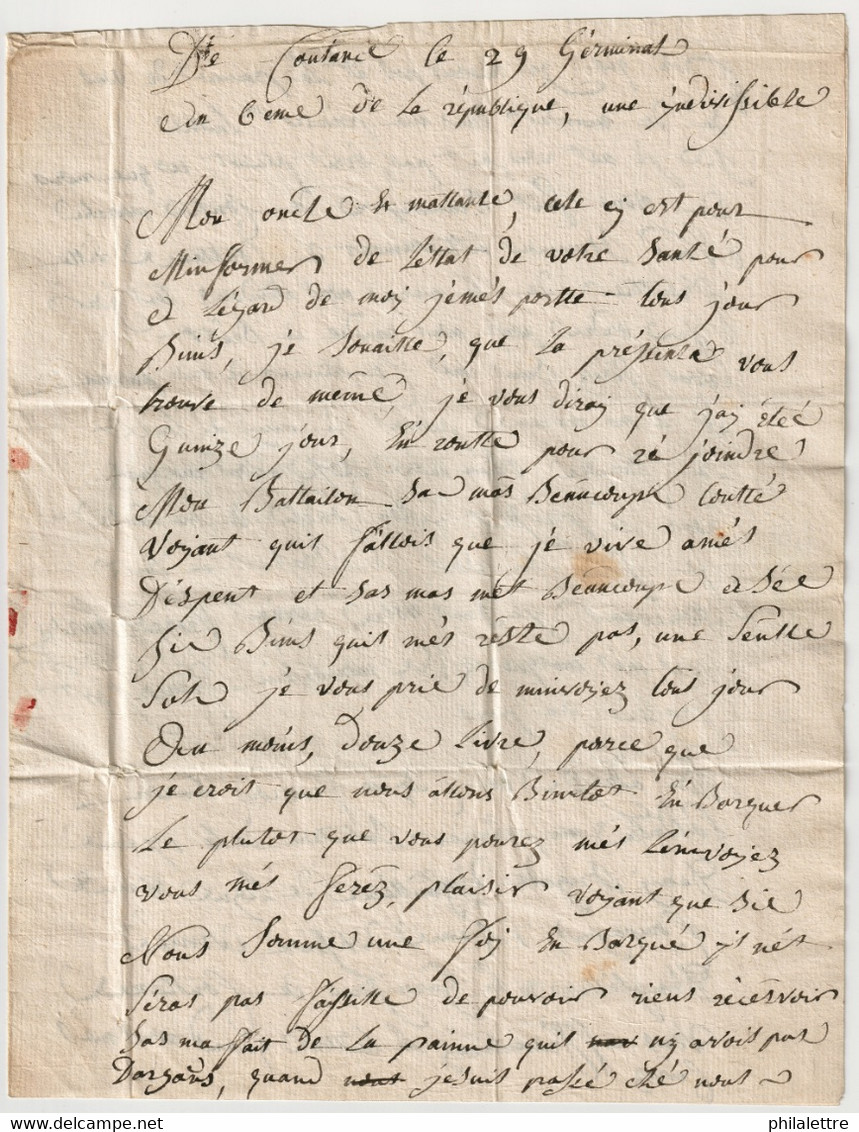 Dté Coutance le 29 Gérminal
du 6 eme de la république, une yndivissible
Mon oncle Et mattante, cele cy est pour
Minformer de l'éttat de votre santé pour
a légard de moy jemés portte tous jour
Biens, je souaitte, que la préssente vous
trouve de mémé, je vous diray que jay étéé
Quinze jour, En routte pour ré joindre
Mon Battaillon sa mas Beaucoup Coutté
Voyant quil fallois que je vive amés
Déspent et sas mas met Beaucoup a séé
Bie Biens quil més réste pas, une seulle
sols je vous prie de minvoyez tous jour
Du moins, douze livre, parce que
je croit que nous allons Bientot En Barquer
Le plutot que vous pourez més l'envoyez
vous més feréz, plaisir voyant que sie
Nous somme une foy En Barqué il nét
séras pas fassille de pouvoir riens récésvoir
sas ma fait de la painne quil ny avois pas
Dargans, quand jesuit passé ché nous
philalettre